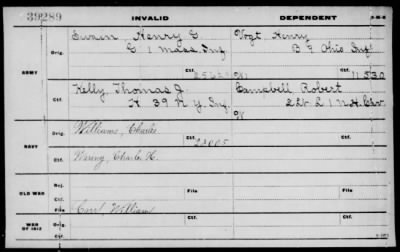 39289 INVALID DEPENDENT
Swain Henry C. Vogt Henry
Orig. G 1 Mass. Inf. B 9 Ohio Inf.
ARMY Ctf. W. Ctf. 11530
Kelly Thomas J. Campbell Robert
Orig. 39 N.Y. Inf. L 1
Ctf. W
Williams, Charles
Orig. Ctf.
NAVY
Charles H.
Ctf.
Rej. File
OLD WAR
Ctf. File
Carr, William
WAR OF 1812 Ctf.